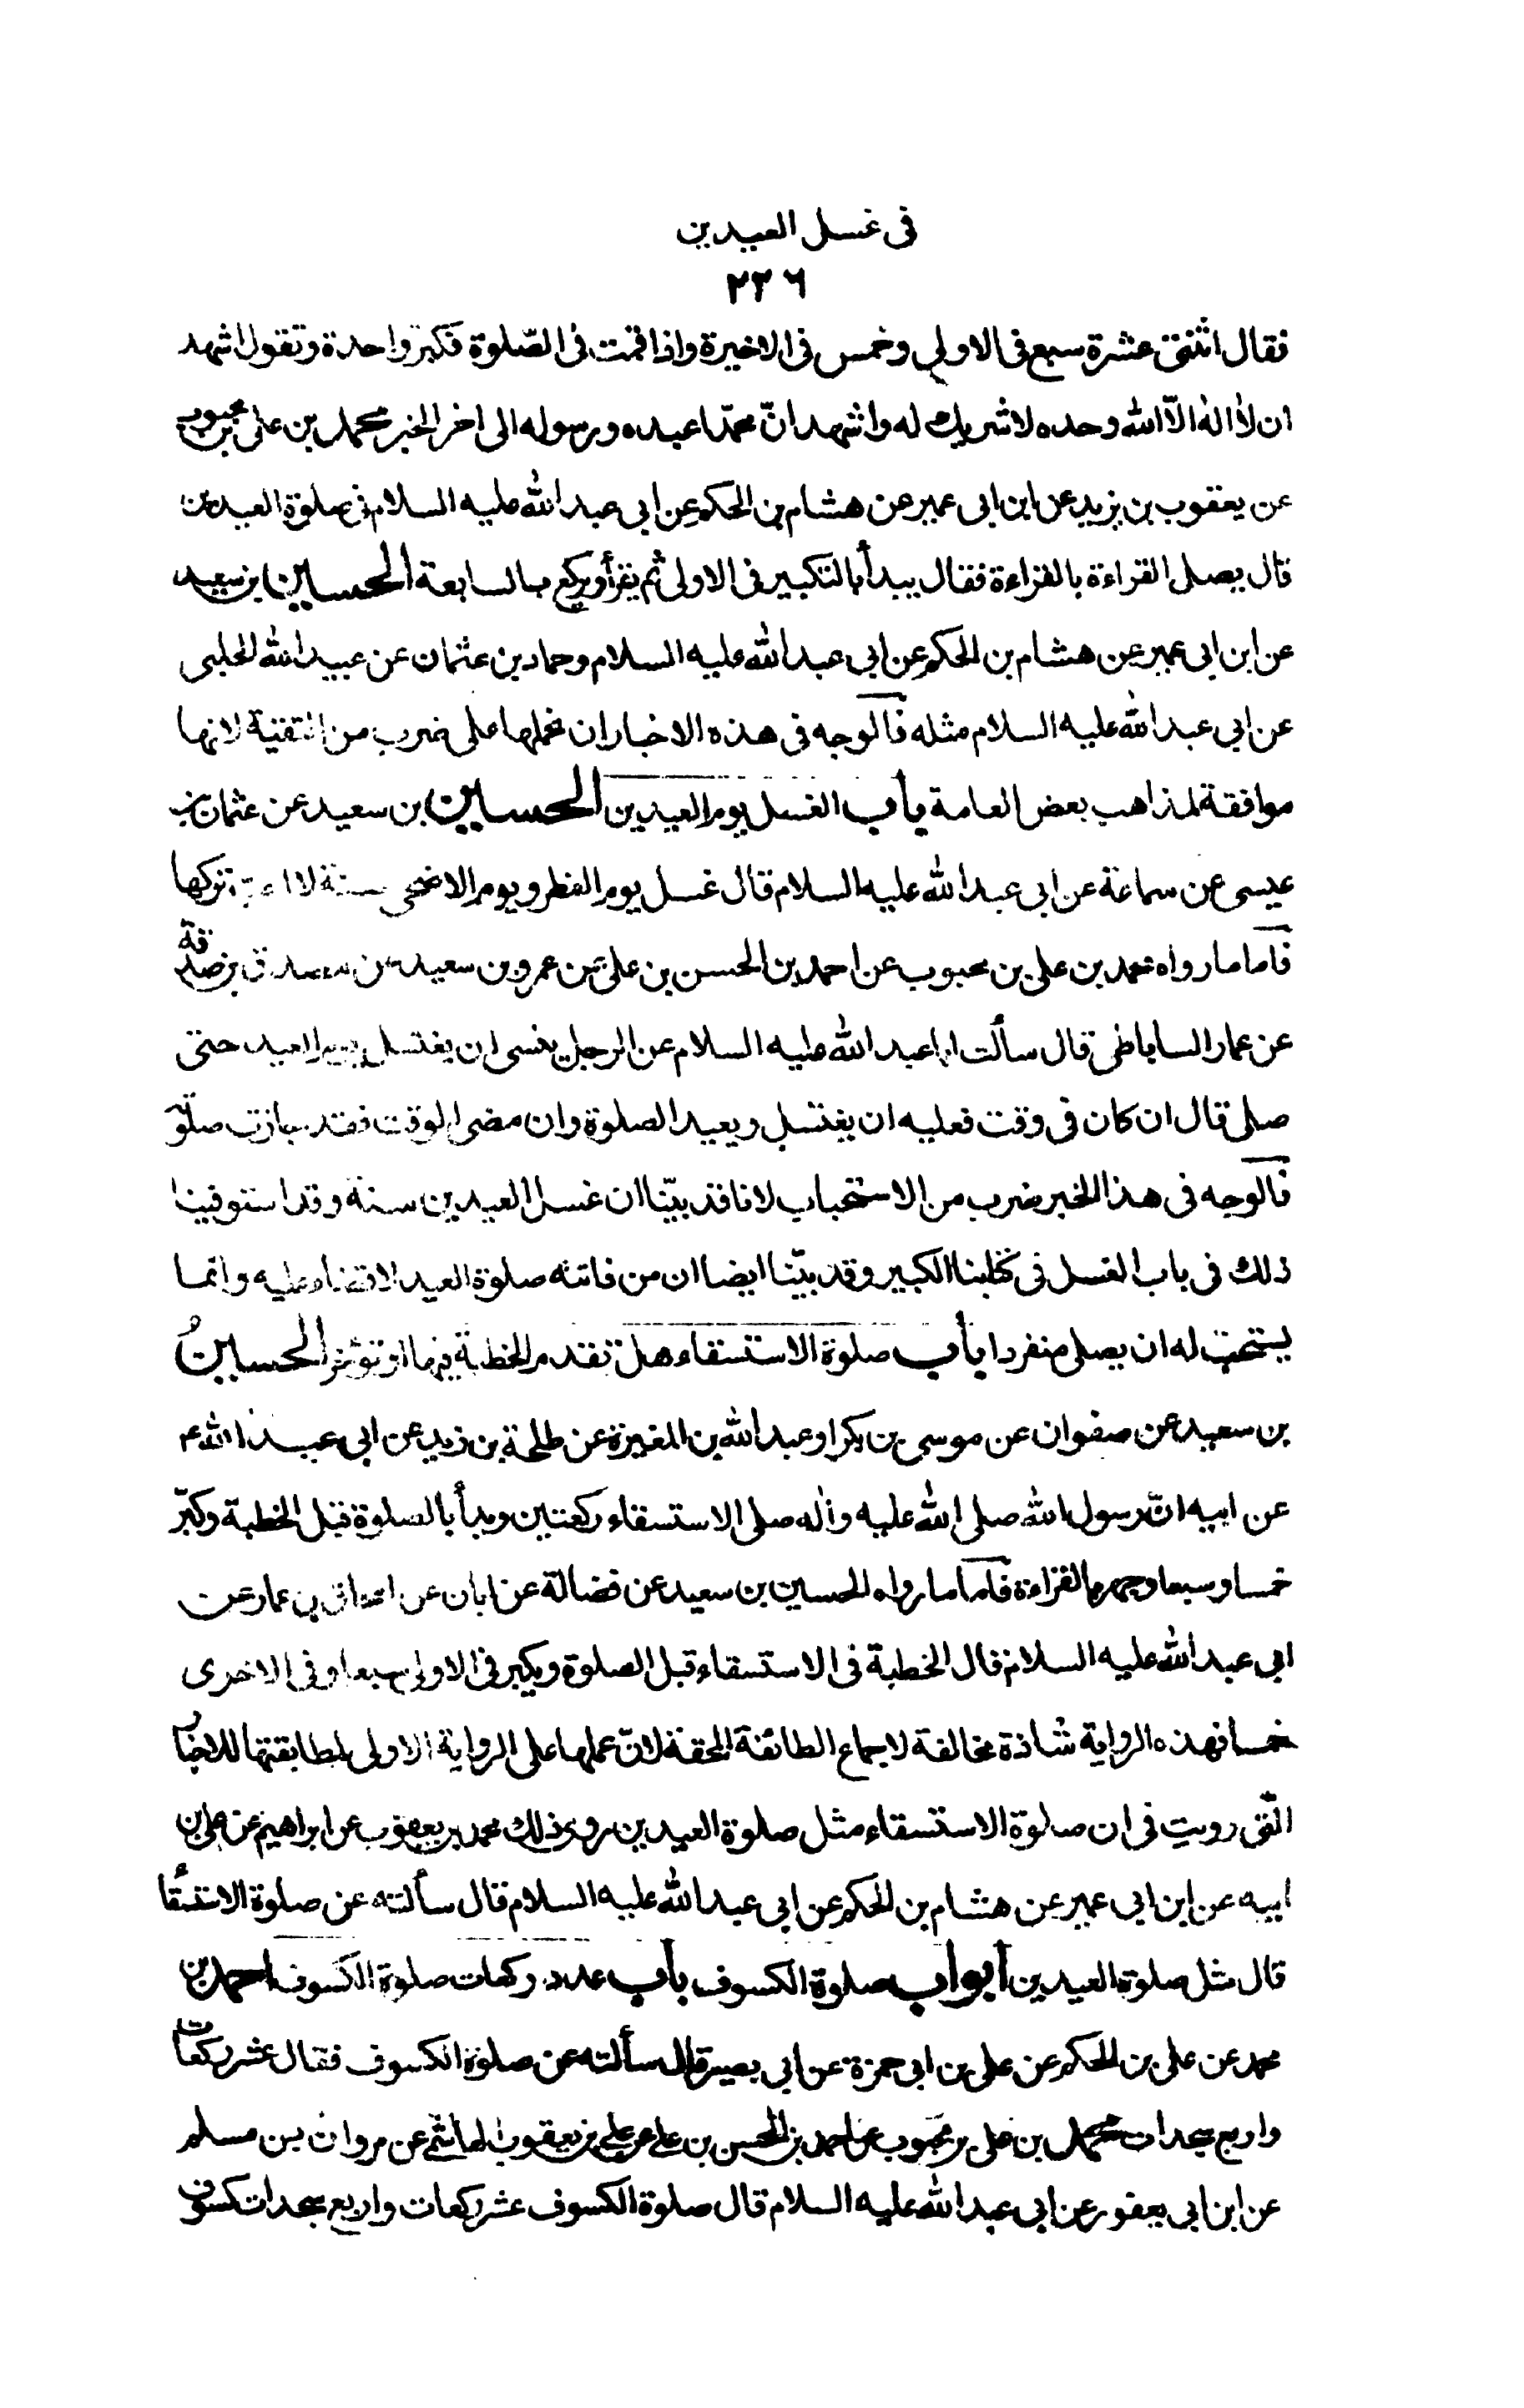 فى غسل العيدين
٢٣٦
فقال اثنتى عشرة سبع فى الاولى وخمس فى الاخيرة واذا قمت فى الصّلوة فكبر واحدة وتقول اشهد
ان لا اله الّا الله وحده لا شريك له واشهد انّ محمّدا عبده ورسوله الى اخر الخبر محمد بن على بن محبوب
عن يعقوب بن يزيد عن ابن ابى عمير عن هشام بن الحكم عن ابى عبد الله عليه السلام فى صلوة العيدين
قال يصل القراءة بالقراءة فقال يبدأ بالتكبير فى الاولى ثم يقرأ ويركع بالسابعة الحسين بن سعيد
عن ابن ابى عمير عن هشام بن الحكم عن ابى عبد الله عليه السلام وحماد بن عثمان عن عبيد الله الحلبى
عن ابى عبد الله عليه السلام مثله فالوجه فى هذه الاخبار ان نحملها على ضرب من التقية لانها
موافقة لمذاهب بعض العامة باب الغسل يوم العيدين الحسين بن سعيد عن عثمان بن
عيسى عن سماعة عن ابى عبد الله عليه السلام قال غسل يوم الفطر ويوم الاضحى سنة لا احب تركها
فاما ما رواه محمد بن على بن محبوب عن احمد بن الحسن بن على عن عمرو بن سعيد عن مصدق بن صدقة
عن عمار الساباطى قال سألت ابا عبد الله عليه السلام عن الرجل ينسى ان يغتسل يوم العيد حتى
صلى قال ان كان فى وقت فعليه ان يغتسل ويعيد الصلوة وان مضى الوقت فقد جازت صلوته
فالوجه فى هذا الخبر ضرب من الاستحباب لانا قد بيّنا ان غسل العيدين سنة وقد استوفينا
ذلك فى باب الغسل فى كتابنا الكبير وقد بيّنا ايضا ان من فاتته صلوة العيد لا قضاء عليه وانما
يستحب له ان يصلى منفردا باب صلوة الاستسقاء هل تقدم الخطبة فيها او تؤخر الحسين
بن سعيد عن صفوان عن موسى بن بكر او عبد الله بن المغيرة عن طلحة بن زيد عن ابى عبد الله ع
عن ابيه انّ رسول الله صلى الله عليه واله صلى الاستسقاء ركعتين وبدأ بالصلوة قبل الخطبة وكبّر
خمسا وسبعا وجهر بالقراءة فاما ما رواه الحسين بن سعيد عن فضالة عن ابان عن اسحاق بن عمار عن
ابى عبد الله عليه السلام قال الخطبة فى الاستسقاء قبل الصلوة ويكبر فى الاولى سبعا وفى الاخرى
خمسا فهذه الرواية شاذة مخالفة لاجماع الطائفة المحقة لانّ عملها على الرواية الاولى لمطابقتها للاخبار
الّتى رويت فى ان صلوة الاستسقاء مثل صلوة العيدين روى ذلك محمد بن يعقوب عن على بن ابراهيم عن
ابيه عن ابن ابى عمير عن هشام بن الحكم عن ابى عبد الله عليه السلام قال سألته عن صلوة الاستسقاء
قال مثل صلوة العيدين أبواب صلوة الكسوف باب عدد ركعات صلوة الكسوف احمد بن
محمد عن على بن الحكم عن على بن ابى حمزة عن ابى بصير قال سألته عن صلوة الكسوف فقال عشر ركعات
واربع سجدات محمد بن على بن محبوب عن احمد بن الحسن بن على عن على بن يعقوب الهاشمى عن مروان بن مسلم
عن ابن ابى يعفور عن ابى عبد الله عليه السلام قال صلوة الكسوف عشر ركعات واربع سجدات كسوف